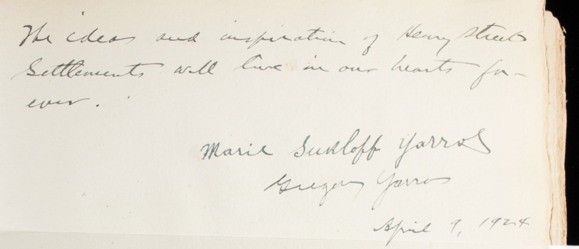 The ideas and inspiration of Henry Street
Settlements will live in our hearts for-
ever.
Marie Sukloff Yarros
Gregory Yarros
April 9, 1924